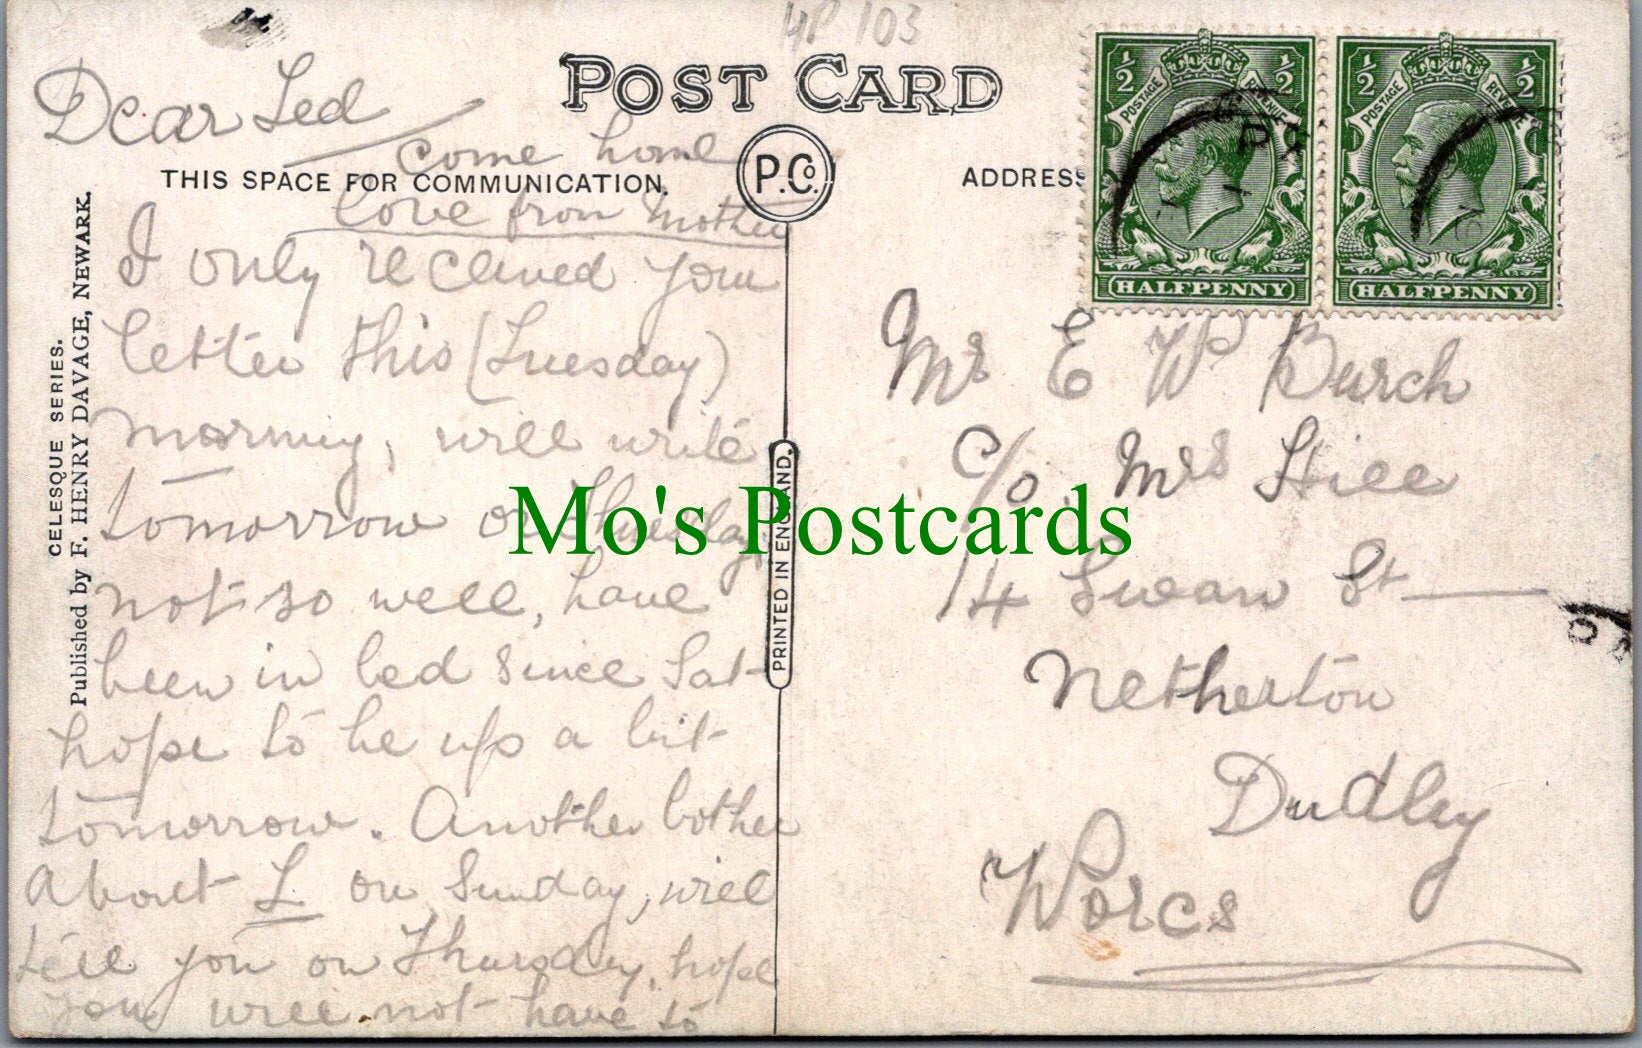 4P 103
POST CARD
Dear Ted
come home
P.Co.
THIS SPACE FOR COMMUNICATION.
love from Mother
I only received your
letter this (Tuesday)
morning, will write
tomorrow or Thursday,
not so well, have
been in bed since Sat-
hope to be up a bit
tomorrow. Another bother
about L on Sunday, will
tell you on Thursday, hope
you will not have to
CELESQUE SERIES.
Published by F. HENRY DAVAGE, NEWARK.
PRINTED IN ENGLAND.
Mo's Postcards
ADDRESS
½ ½
POSTAGE REVENUE
HALFPENNY
½ ½
POSTAGE REVENUE
HALFPENNY
Mr E W Burch
c/o Mrs Hill
14 Swan St
Netherton
Dudley
Worcs